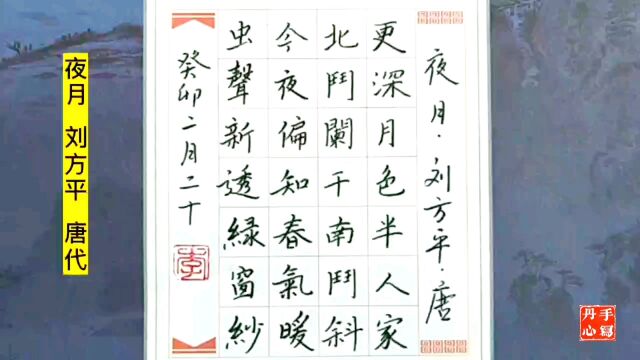 夜月·刘方平·唐
更深月色半人家
北鬥闌干南鬥斜
今夜偏知春氣暖
虫聲新透緑窗紗
癸卯二月二十
夜月 刘方平 唐代
手寫
丹心